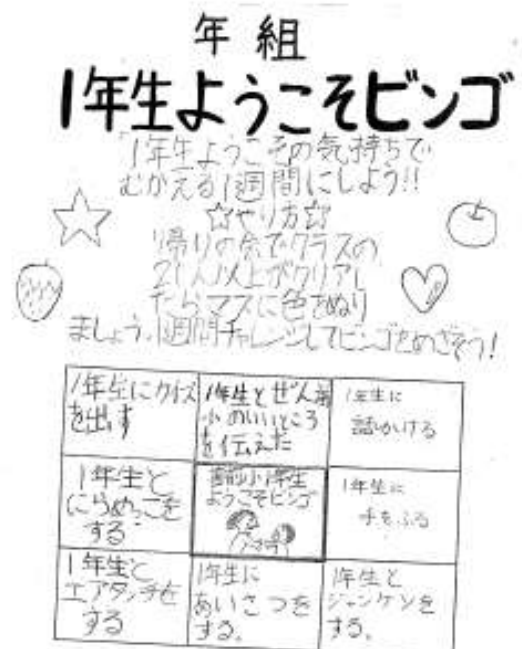 年 組
1年生ようこそビンゴ
1年生ようこその気持ちで
むかえる1週間にしよう!!
☆やり方☆
帰りの会でクラスの
人以上がクリアし
たらマスに色をぬり
ましょう。1週間チャレンジしてビンゴをめざそう!
1年生にクイズ
を出す
1年生と
小のいいところ
を伝えた
1年生に
話しかける
1年生と
にらめっこを
する
小1年生
ようこそビンゴ
1年生に
手をふる
1年生と
エアタッチを
する
1年生に
あいさつを
する。
1年生と
ジャンケンを
する。